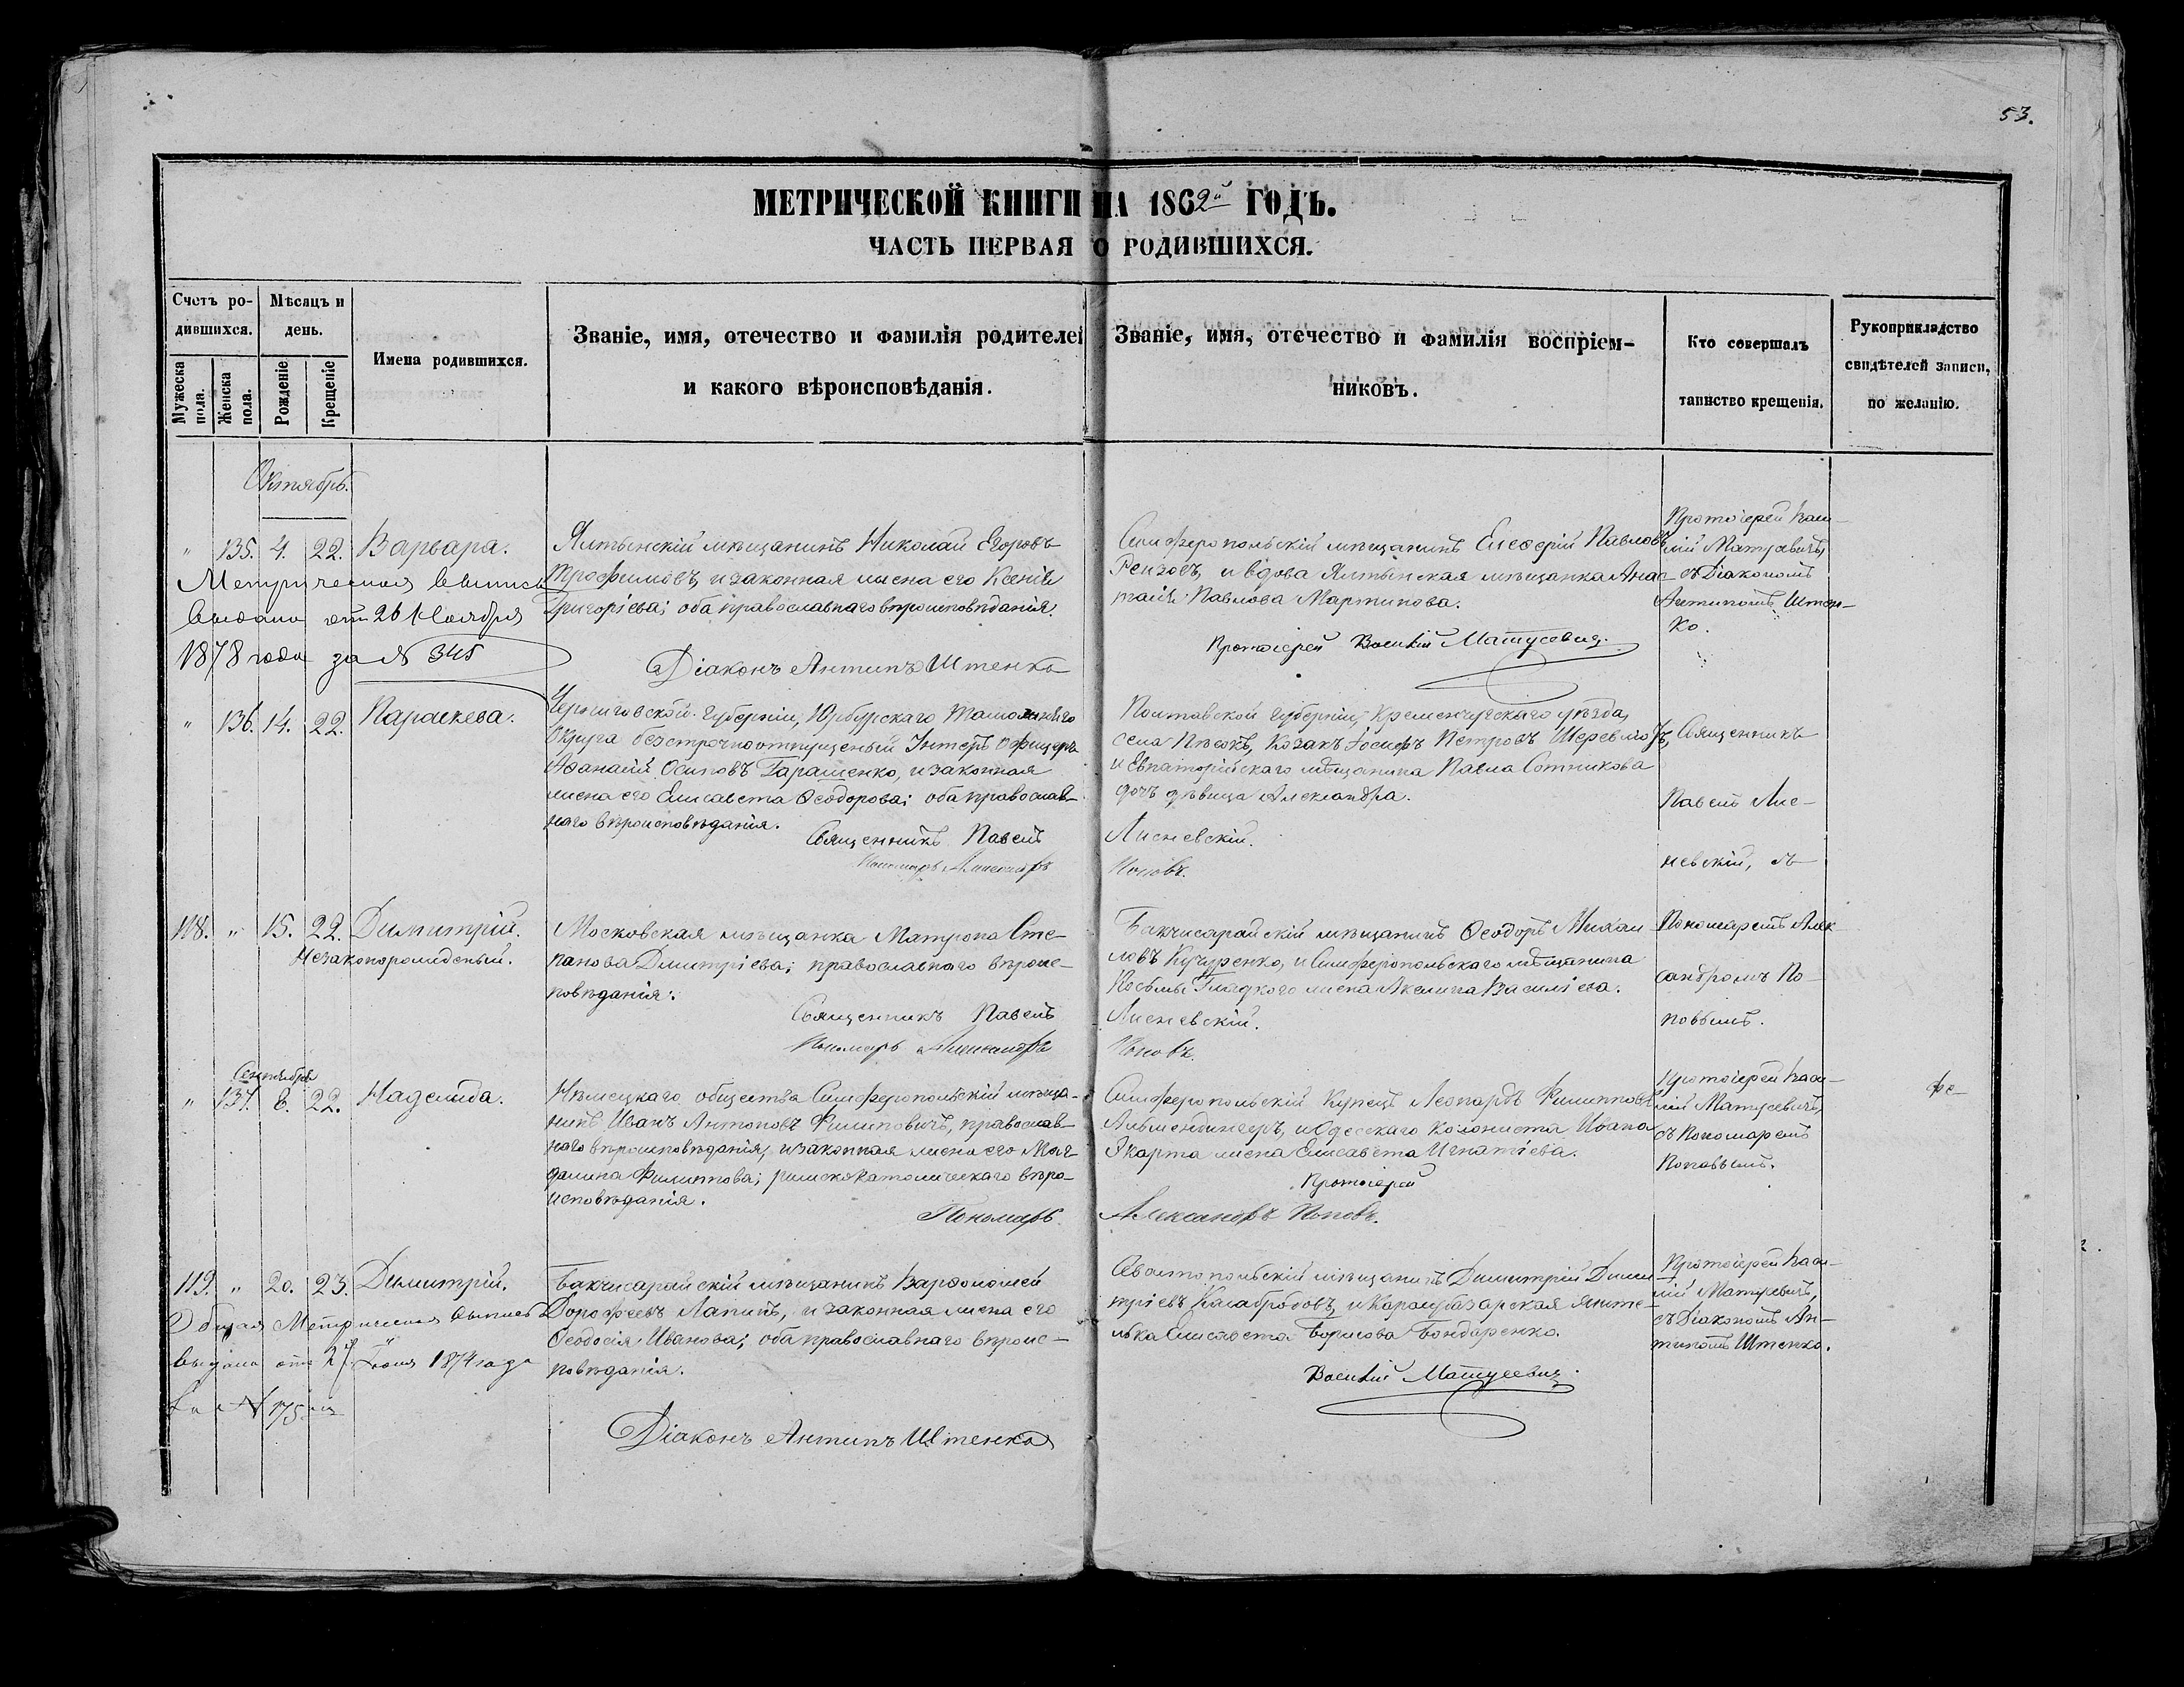 53.
МЕТРИЧЕСКОЙ КНИГИ НА 1862й ГОДЪ.
ЧАСТЬ ПЕРВАЯ О РОДИВШИХСЯ.
Счетъ ро-
дившихся.
Мужеска пола.
Женска пола.
Мѣсяцъ и
день.
Рожденіе
Крещеніе
Имена родившихся.
Званіе, имя, отечество и фамилія родителей
и какого вѣроисповѣданія.
Званіе, имя, отечество и фамилія воспріем-
никовъ.
Кто совершалъ
таинство крещенія.
Рукоприкладство
свидѣтелей записи,
по желанію.
Октябрь.
" 135. 4. 22. Варвара.
Метрическая выпись
выдана отъ 26 Ноября
1878 года за № 345
Ялтынскій мѣщанинъ Николай Егоровъ
Трофимовъ, и законная жена его Ксенія
Григоріева; оба православнаго вѣроисповѣданія.
Діаконъ Антипъ Штенко
Симферопольскій мѣщанинъ Елевѳерій Павловъ
Рензовъ, и вдова Ялтынская мѣщанка Анас-
тасія Павлова Мартинова.
Протоіерей Василій Матусевич
Протоіерей Васи-
лій Матусевичъ,
съ Діакономъ
Антипомъ Штен-
ко.
" 136. 14. 22. Параскева.
Черниговской Губерніи, Юрбурскаго Таможеннаго
Округа безсрочноотпущенный Унтеръ Офицеръ
Аѳанасій Осиповъ Гаращенко, и законная
жена его Елисавета Ѳеодорова; оба православ-
наго вѣроисповѣданія.
Священникъ Павелъ
Лисневскій.
Пономарь Александръ
Поповъ.
Полтавской Губерніи, Кременчугскаго уѣзда,
села Пѣсокъ, Козакъ Іосифъ Петровъ
и Евпаторійскаго мѣщанина Павла Сотникова
дочь дѣвица Александра.
Священникъ
Павелъ Лис-
невскій, съ
118. " 15. 22. Димитрій.
Незаконорожденый.
Московская мѣщанка Матрона Сте-
панова Димитріева; православнаго вѣроис-
повѣданія.
Священникъ Павелъ
Лисневскій.
Пономарь Александръ
Поповъ.
Бакчисарайскій мѣщанинъ Ѳеодоръ Михаи-
ловъ Кучуренко, и Симферопольскаго мѣщанина
Косьмы Гладкого жена Акелина Василіева.
Пономаремъ Алек-
сандромъ По-
повымъ.
Сентября
" 137. 8. 22. Надежда.
Нѣмецкаго общества Симферопольскій мѣща-
нинъ Иванъ Антоновъ Филиповичъ, православ-
наго вѣроисповѣданія, и законная жена его Маг-
далина Филиппова; римскокатолическаго вѣро-
исповѣданія.
Пономарь
Александръ Поповъ.
Симферопольскій Купецъ Леонардъ Филипповъ
Альмендингеръ, и Одесскаго колониста Ивана
Экарта жена Елисавета Игнатіева.
Протоіерей
Протоіерей Васи-
лій Матусевичъ,
съ Пономаремъ
Поповымъ.
119. " 20. 23. Димитрій.
Метрическая выпись
выдана отъ 27 Іюня 1874 года
за № 175
Бакчисарайскій мѣщанинъ Варѳоломей
Дорофеевъ Лапинъ, и законная жена его
Ѳеодосія Иванова; оба православнаго вѣроис-
повѣданія.
Діаконъ Антипъ Штенко
Севастопольскій мѣщанинъ Димитрій Дими-
тріевъ Калабродовъ, и Карасубазарская жите-
лька Елисавета Борисова Бондаренко.
Василій Матусевич
Протоіерей Васи-
лій Матусевичъ,
съ Діакономъ Ан-
типомъ Штенко.